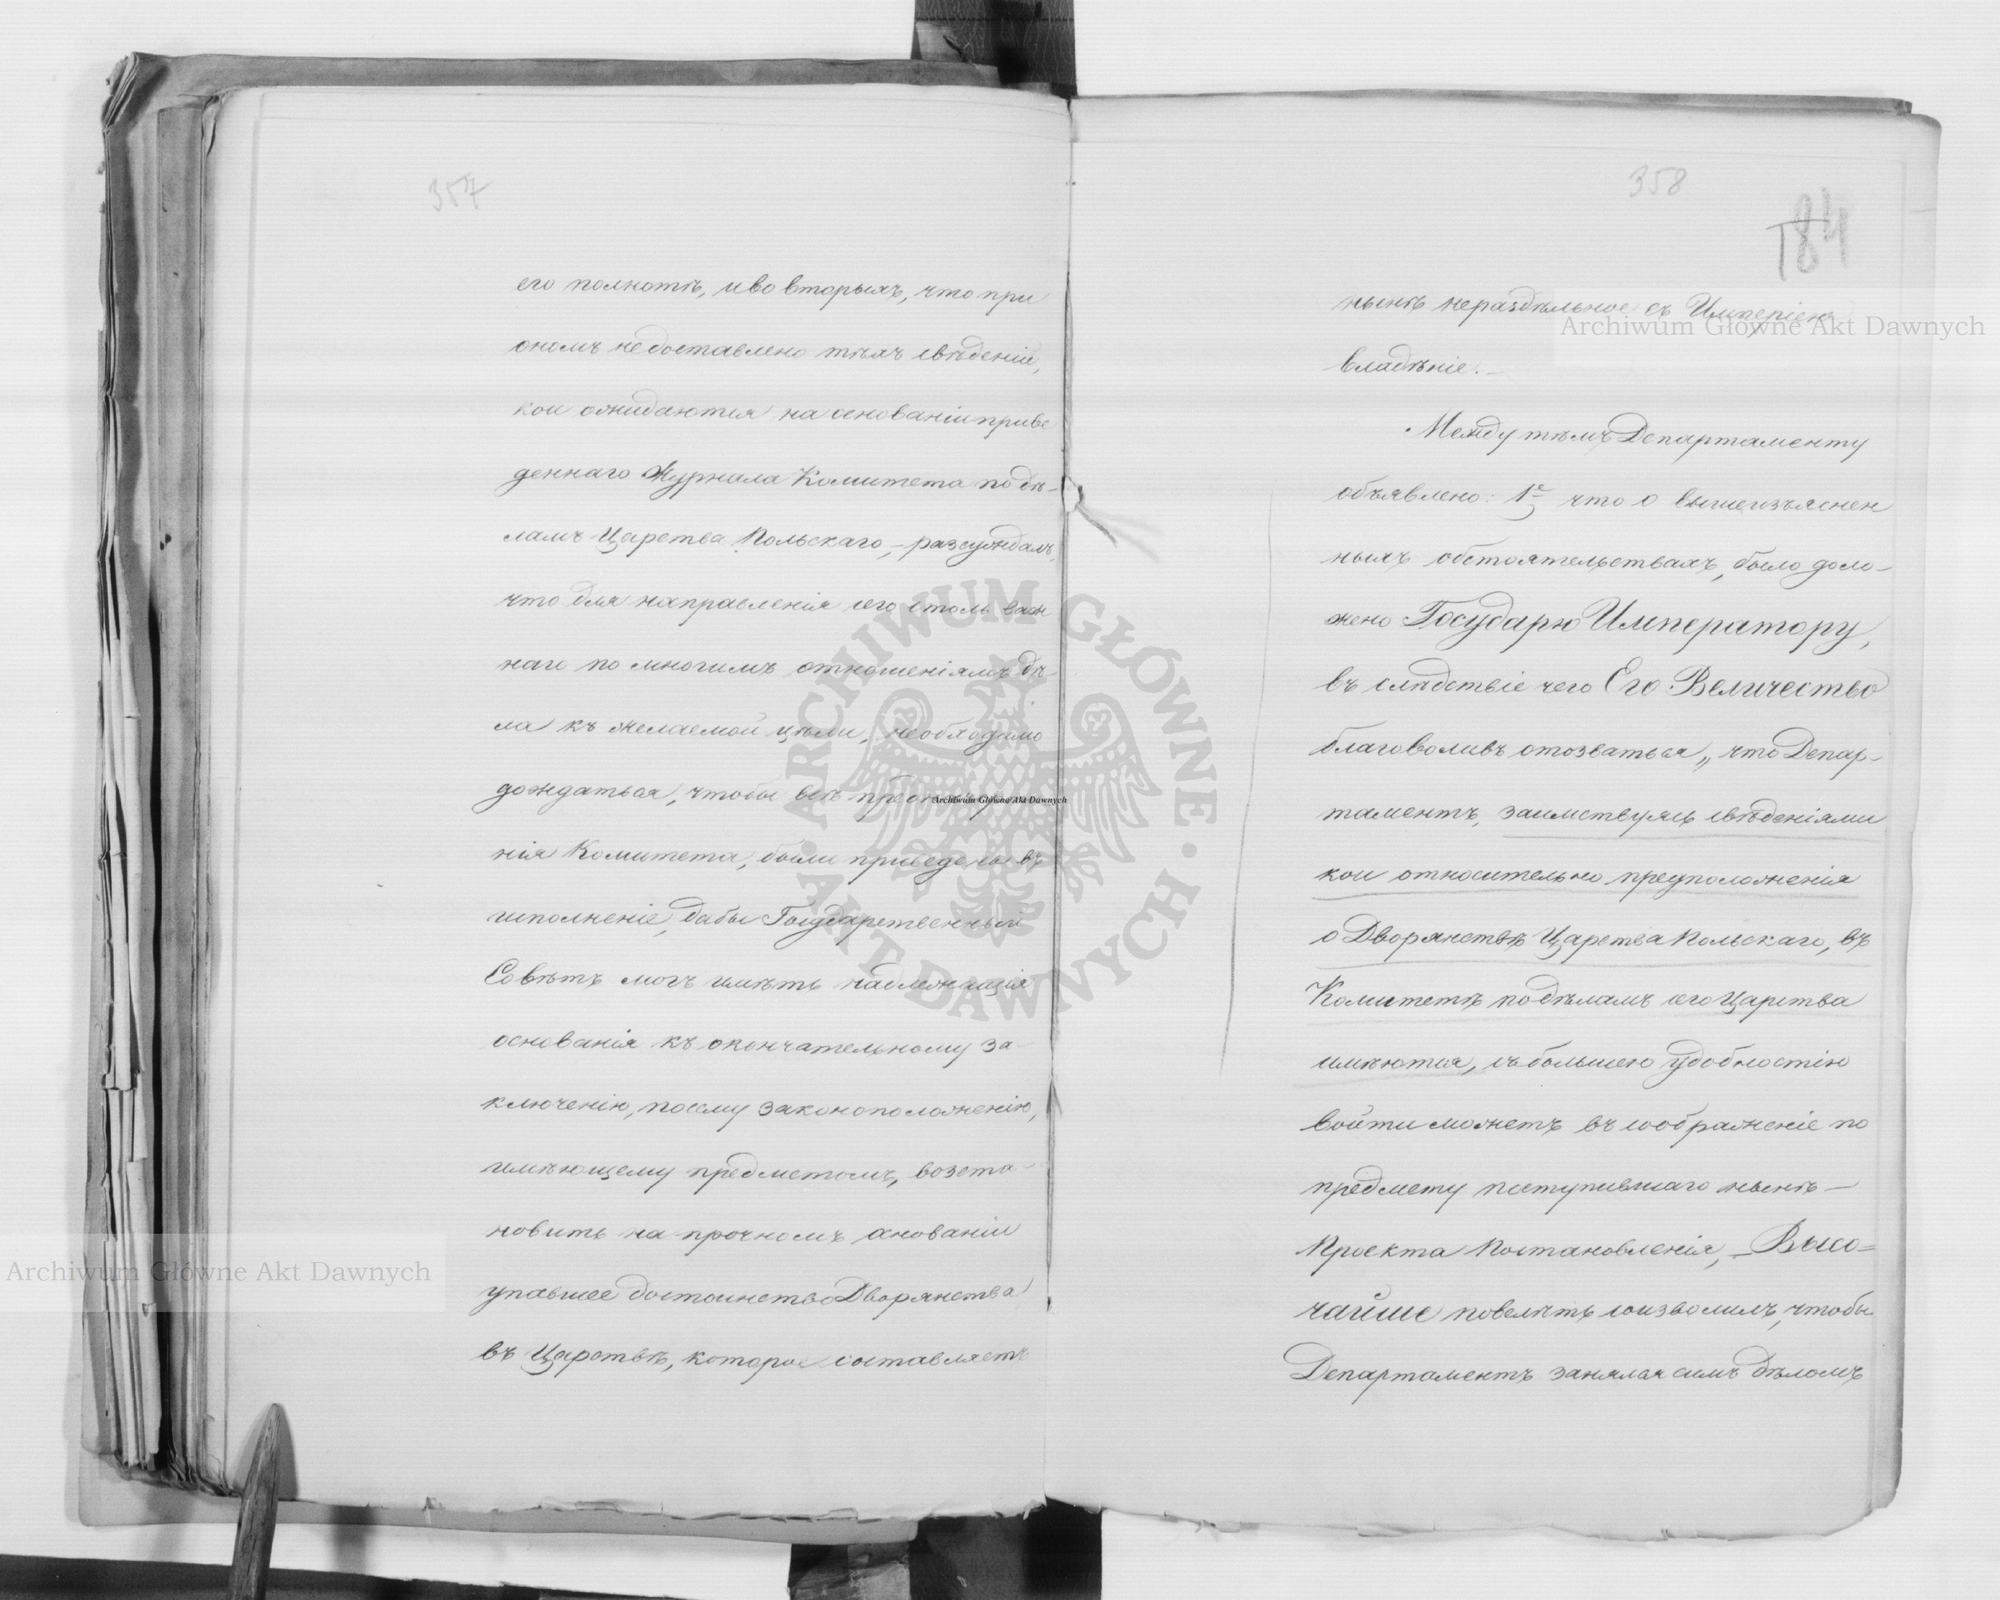 357
его полнотѣ, и во вторыхъ, что при
ономъ не доставлено тѣхъ свѣденій,
кои ожидаются на основаніи приве
деннаго Журнала Комитета по дѣ-
ламъ Царства Польскаго, – разсуждалъ,
что для направленія сего столь важ
наго по многимъ отношеніямъ дѣ-
ла къ желаемой цѣли, необходимо
дождаться, чтобы всѣ
нія Комитета, были приведены въ
исполненіе, дабы Государственный
Совѣтъ могъ имѣть надлежащія
основанія къ окончательному за-
ключенію, по сему законоположенію,
имѣющему предметомъ, возста-
новить на прочномъ основаніи
упавшее достоинство Дворянства
въ Царствѣ, которое составляетъ
358
184
нынѣ нераздѣльное съ Имперіею
владѣніе. –
Между тѣмъ Департаменту
объявлено: 1е что о вышеизъяснен
ныхъ обстоятельствахъ, было доло-
жено Государю Императору,
въ слѣдствіе чего Его Величество
благоволивъ отозваться „что Депар-
таментъ, заимствуясь свѣденіями
кои относительно предположенія
о Дворянствѣ Царства Польскаго, въ
Комитетѣ по дѣламъ сего Царства
имѣются, съ большею удобностію
войти можетъ въ соображеніе по
предмету поступившаго нынѣ –
Проекта Постановленія, – Высо=
чайше повелѣть соизволилъ, чтобы
Департаментъ занялся симъ дѣломъ
Archiwum Główne Akt Dawnych
Archiwum Główne Akt Dawnych
Archiwum Główne Akt Dawnych
ARCHIWUM GŁÓWNE AKT DAWNYCH